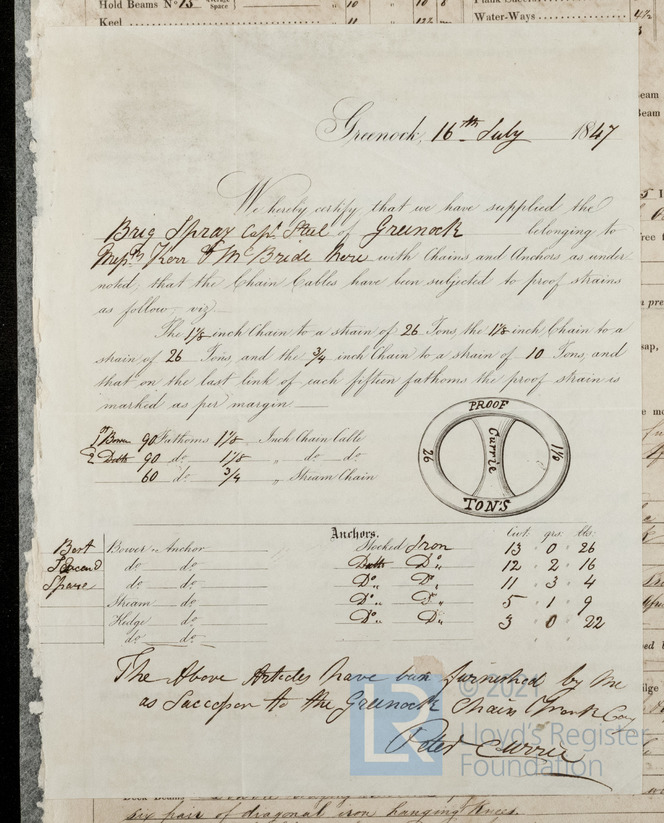 Hold Beams No 13
Space
" 10 " 10 8
Keel
" 11 " 12½ "
Water-Ways
4½
Greenock, 16th July 1847
We hereby certify that we have supplied the
Brig Spray Capt Steel of Greenock belonging to
Messrs Kerr & McBride here with Chains and Anchors as under
noted, that the Chain Cables have been subjected to proof strains
as follow, viz
The 1⅛ inch Chain to a strain of 26 Tons, the 1⅛ inch Chain to a
strain of 26 Tons, and the ¾ inch Chain to a strain of 10 Tons, and
that on the last link of each fifteen fathoms the proof strain is
marked as per margin
PROOF
26
Currie
1⅛
TONS
1st Bower 90 Fathoms 1⅛ Inch Chain Cable
2 Ditto 90 do 1⅛ " do do
60 do ¾ " Stream Chain
Anchors.
Cwt. qrs. lbs.
Best Bower Anchor Stocked Iron 13 0 26
Second do do Ditto Do 12 2 16
Spare do do Do Do 11 3 4
Stream do Do Do 5 1 9
Kedge do Do Do 3 0 22
do do
The Above Articles have been furnished by me
as Successor to the Greenock Chain Work Coy
Peter Currie
© 2021
LR
Lloyd's Register
Foundation
Deck Beams
six pair of diagonal iron hanging knees.